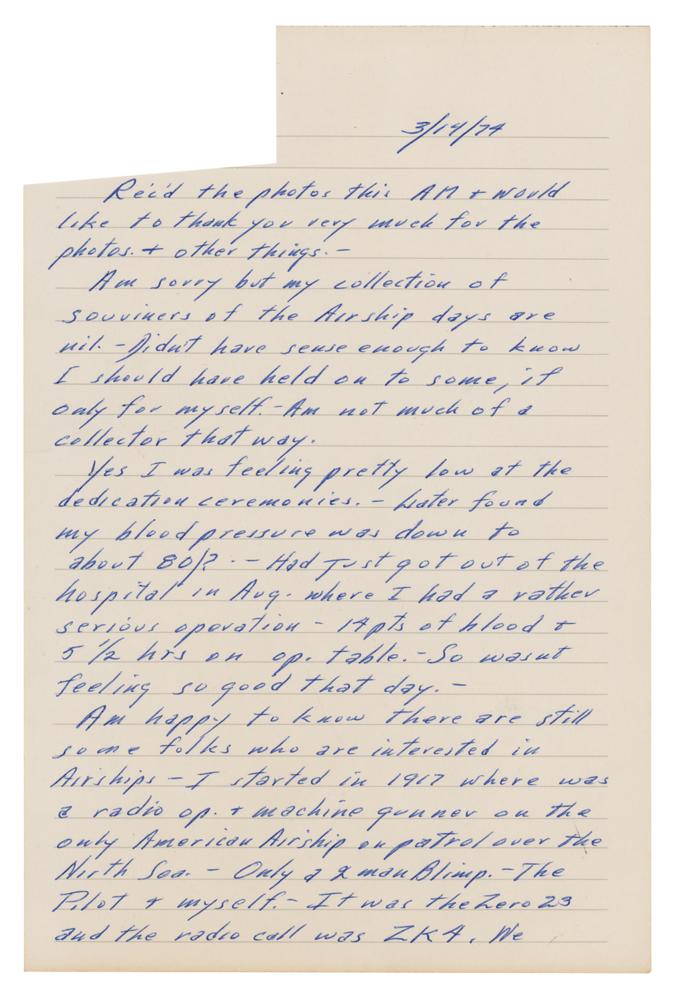 3/14/74
Rec'd the photos this AM + would
like to thank you very much for the
photos. + other things. -
Am sorry but my collection of
souviners of the Airship days are
nil. - Didn't have sense enough to know
I should have held on to some, if
only for myself. - Am not much of a
collector that way.
Yes I was feeling pretty low at the
dedication ceremonies. - Later found
my blood pressure was down to
about 80/? - - Had just got out of the
hospital in Aug. where I had a rather
serious operation - 14 pts of blood +
5 1/2 hrs on op. table. - So wasnt
feeling so good that day. -
Am happy to know there are still
some folks who are interested in
Airships - I started in 1917 where was
a radio op. + machine gunner on the
only American Airship on patrol over the
North Sea. - Only a 2 man Blimp. - The
Pilot + myself. - It was the Zero 23
and the radio call was ZK4. We